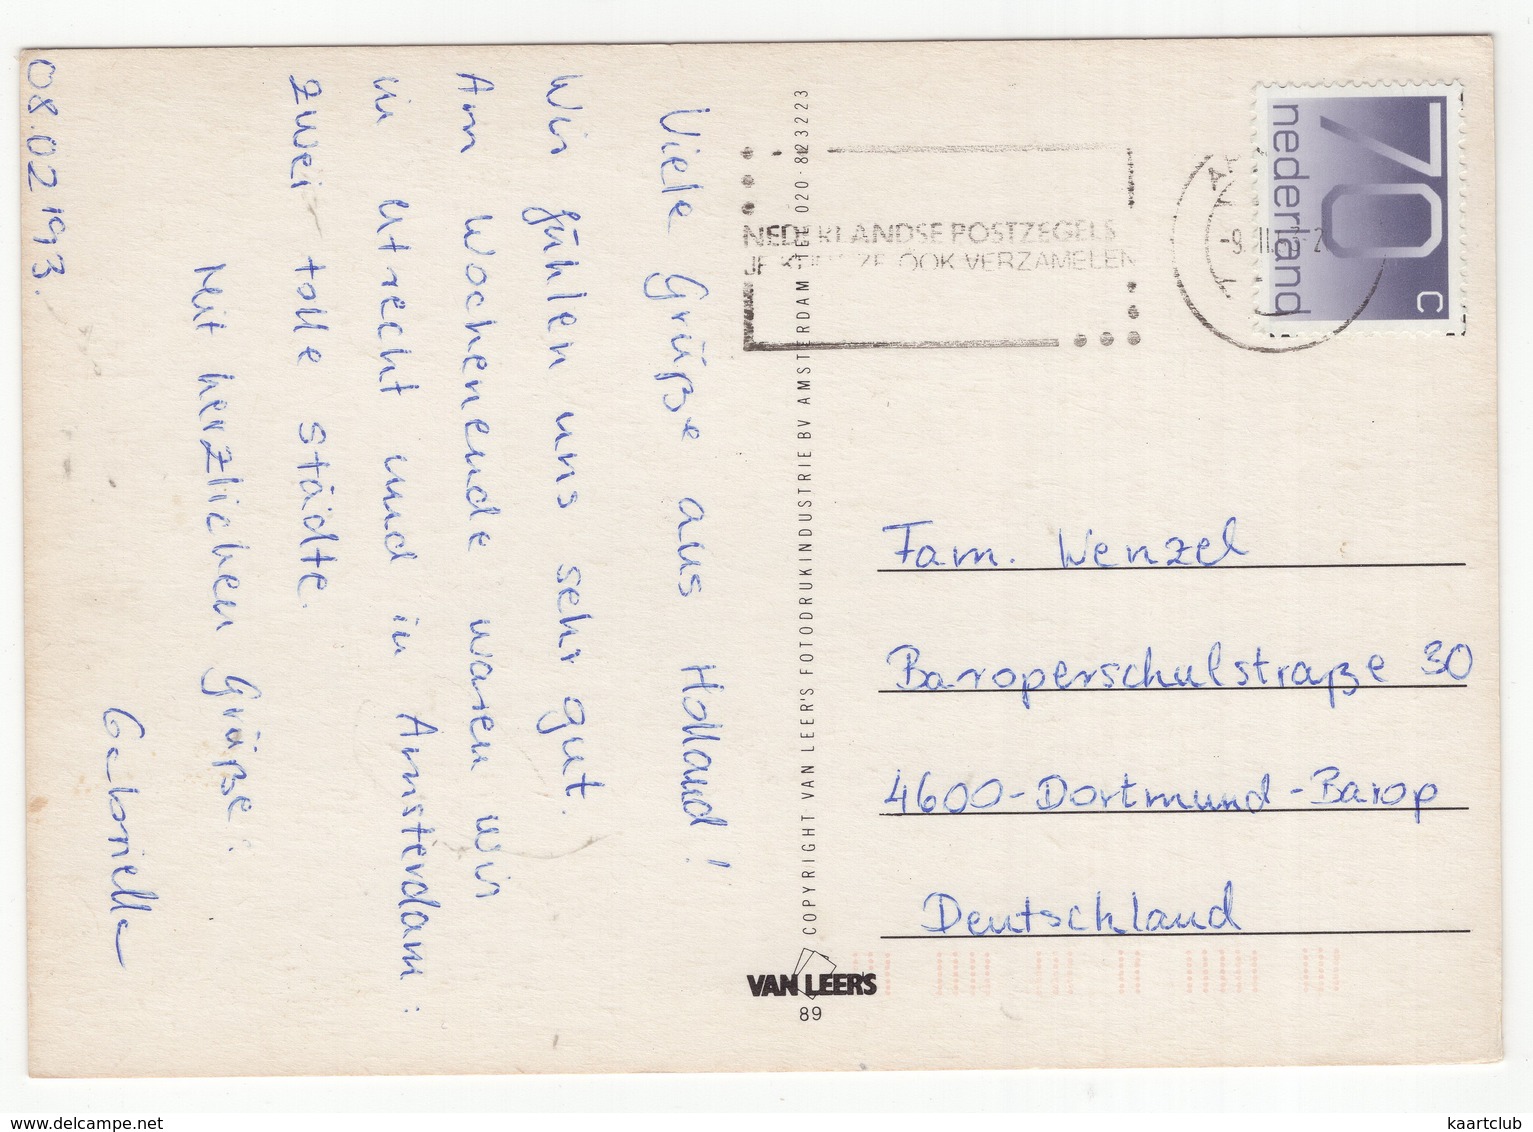 08.02.'93.
Viele Grüße aus Holland!
Wir fühlen uns sehr gut.
Am Wochenende waren wir
in Utrecht und in Amsterdam:
zwei tolle Städte.
Mit herzlichen Grüße:
Gabriella
COPYRIGHT VAN LEER'S FOTODRUKINDUSTRIE BV AMSTERDAM - TEL 020-823223
VAN LEER'S
89
NEDERLANDSE POSTZEGELS
OOK VERZAMELEN
70
c
nederland
Fam. Wenzel
Baroperschulstraße 30
4600-Dortmund-Barop
Deutschland
www.delcampe.net
kaartclub